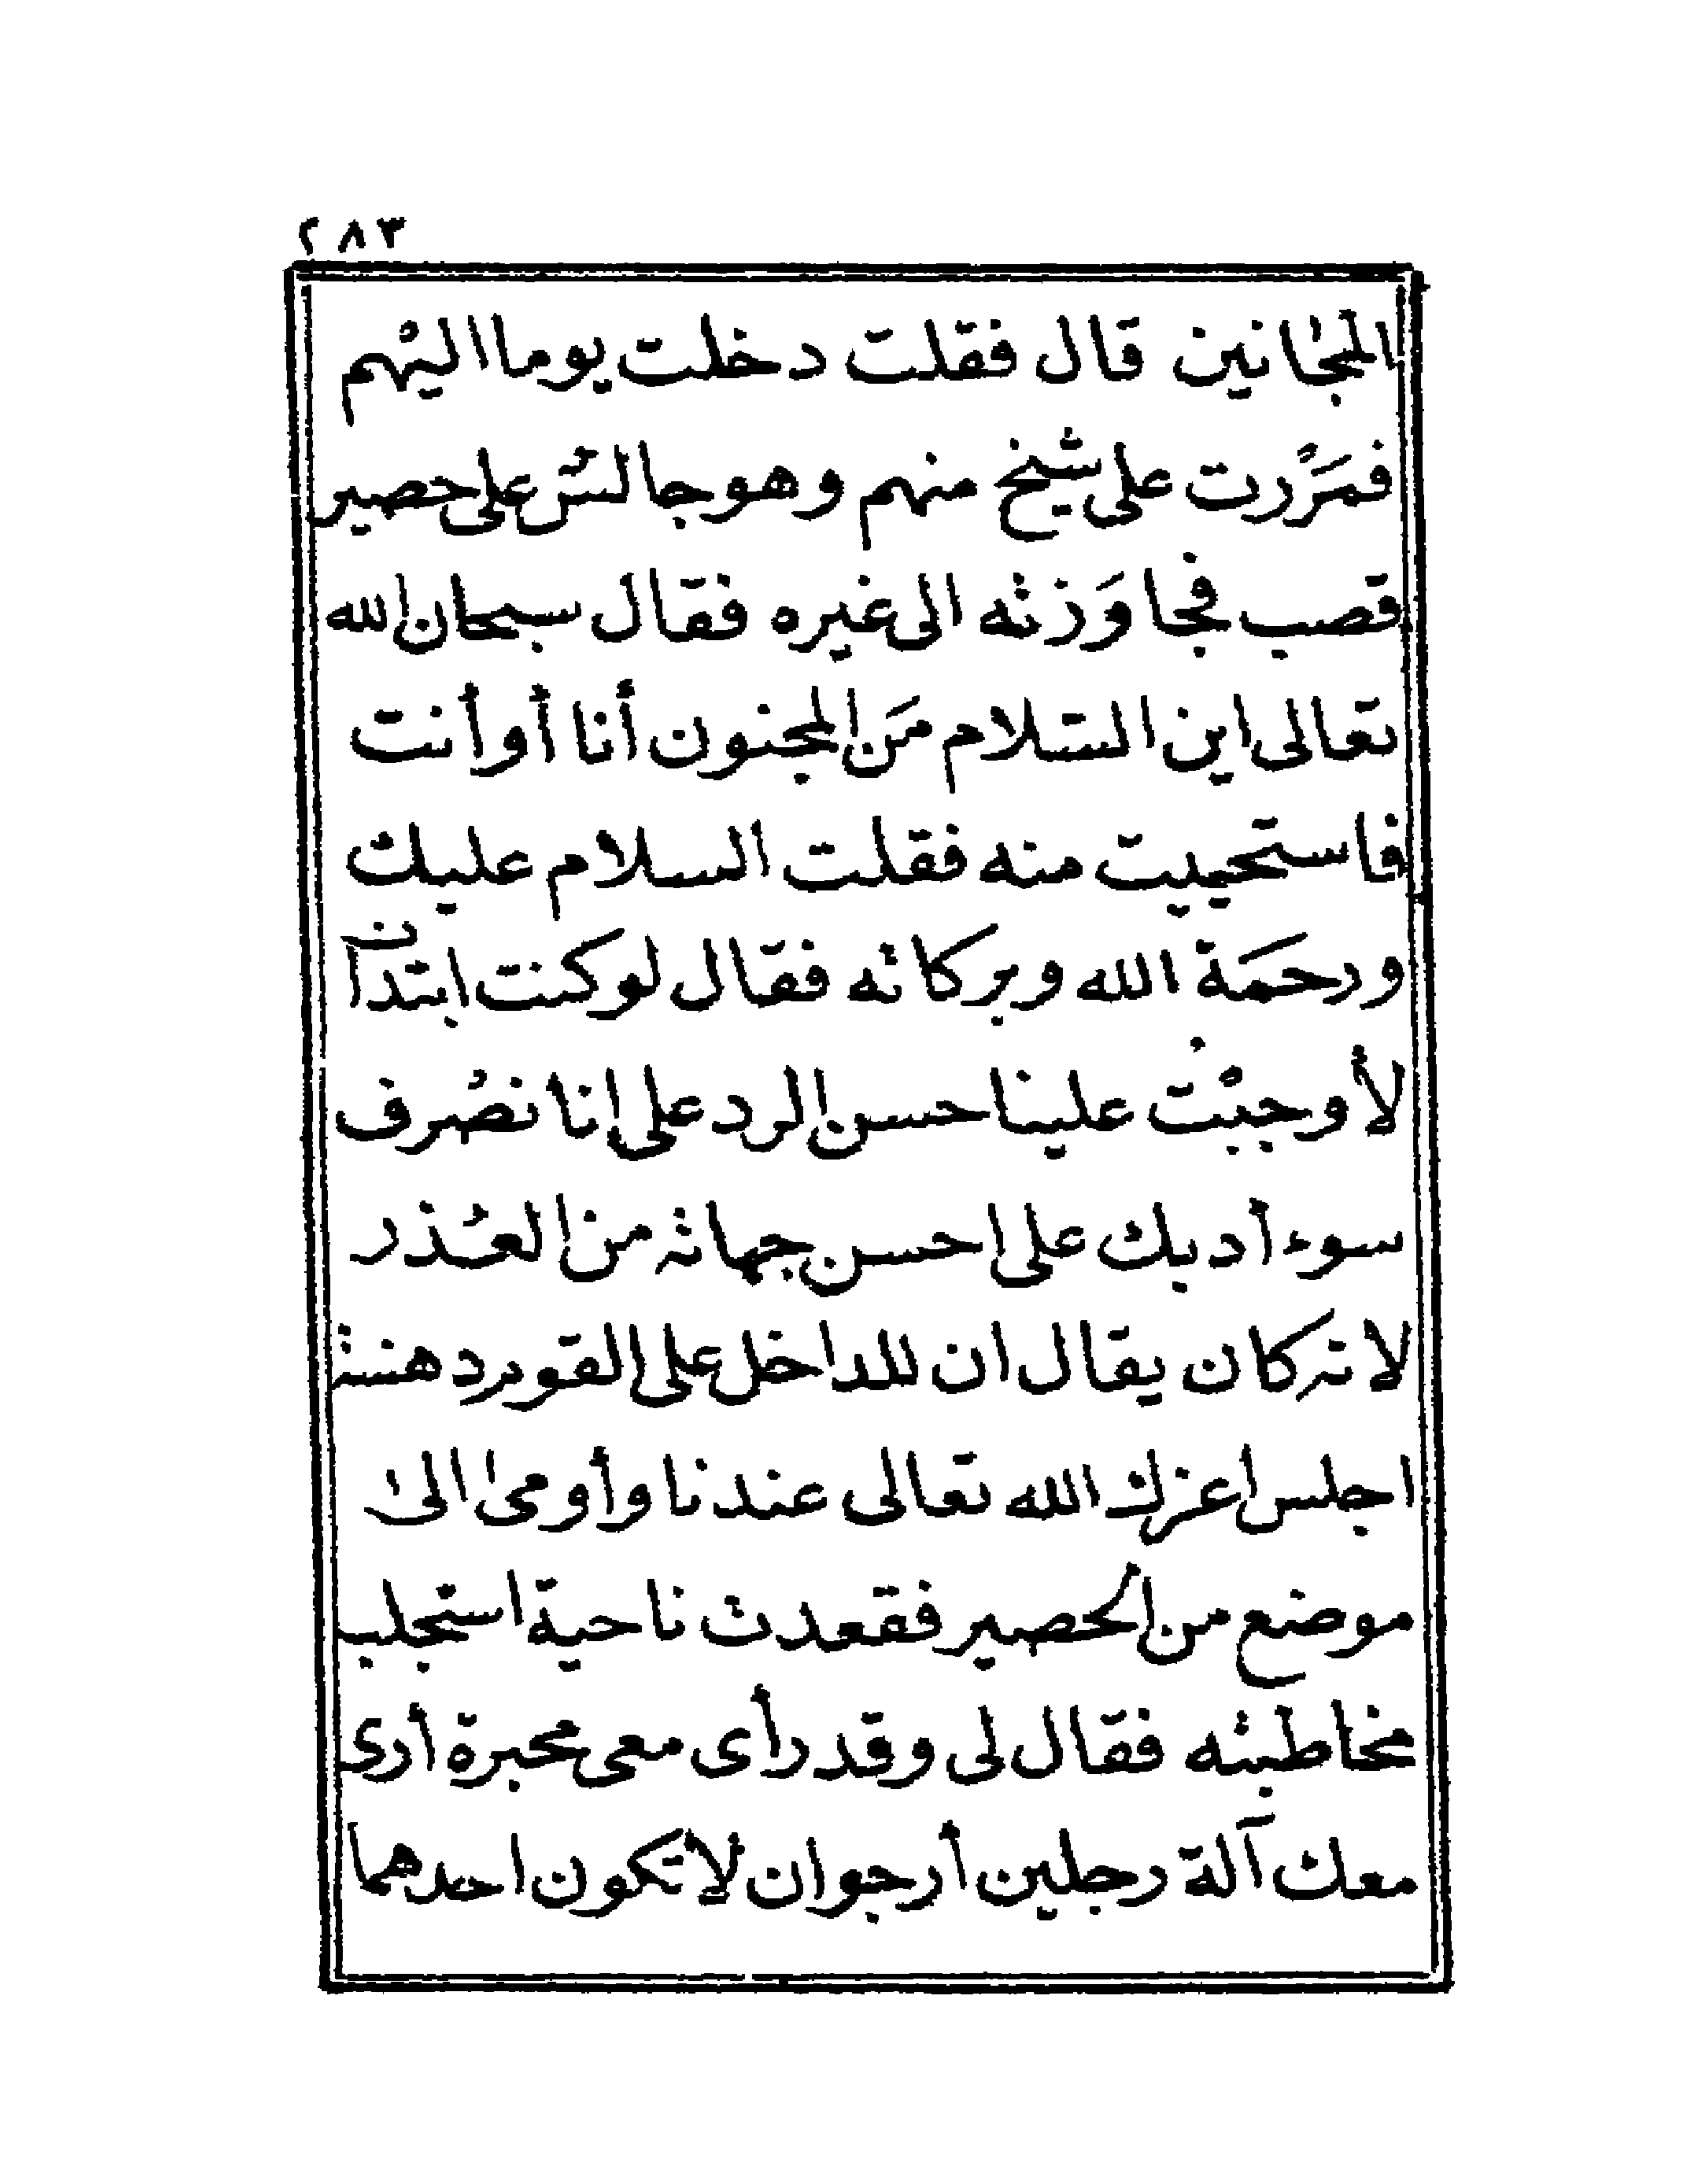 ٢٨٣
المجانين قال فقلت دخلت يوما اليهم
فمررت على شيخ منهم وهو جالس على حصير
قصب فجاوزته الى غيره فقال سبحان الله
تعالى اين السلام من المجنون أنا أو أنت
فاستحييت منه فقلت السلام عليك
ورحمة الله وبركاته فقال لو كنت ابتدأت
لأوجبت علينا حسن الرد على انا نصرف
سوء أدبك على احسن جهاته من العذر
لانه كان يقال ان للداخل على القوم دهشة
اجلس اعزك الله تعالى عندنا وأومى الى
موضع من الحصير فقعدت ناحية استجلب
مخاطبته فقال لى وقد رأى معى محبرة أرى
معك آلة رجلين أرجو ان لا تكون احدهما